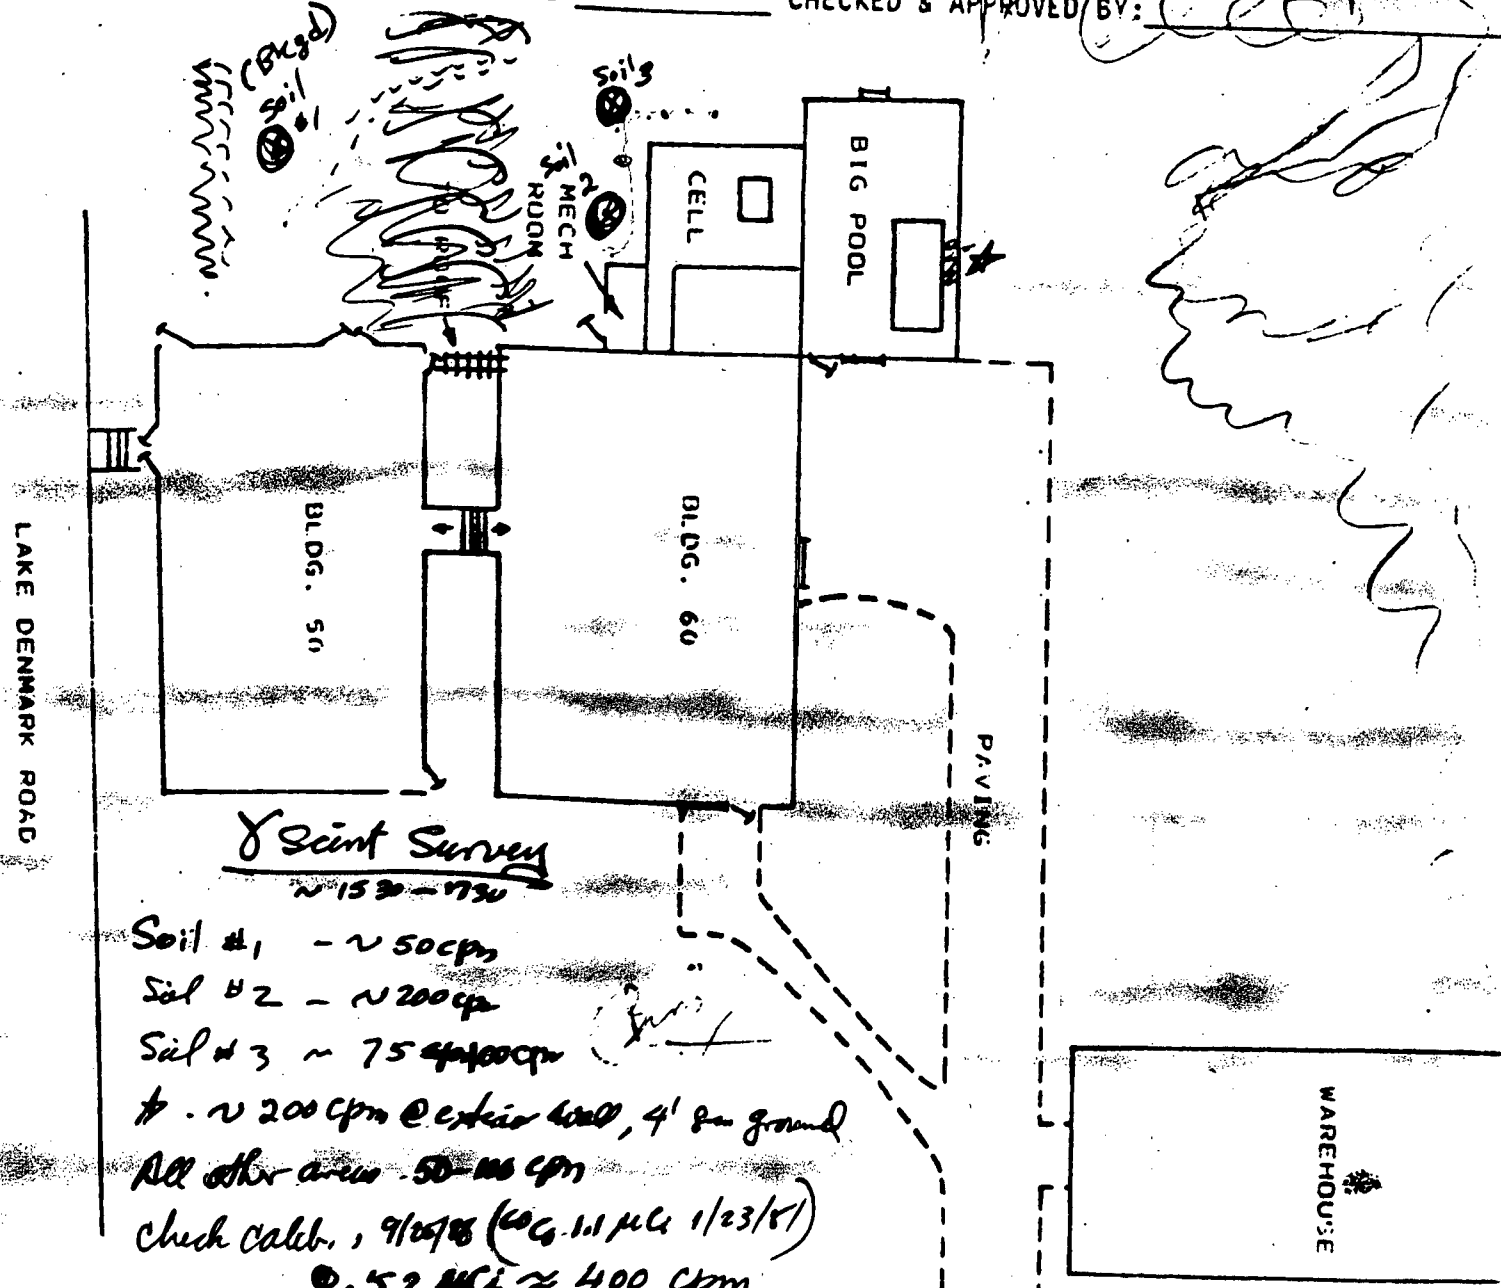 CHECKED & APPROVED BY:
(Bkgd)
Soil
#1
Soil 3
2
MECH
ROOM
CELL
BIG POOL
BLDG. 50
BLDG. 60
LAKE DENMARK ROAD
PAVING
WAREHOUSE
γ Scint Survey
~ 1530 - 1730
Soil #1 - ~ 50 cpm
Soil #2 - ~ 200 cpm
Soil #3 ~ 75 cpm
~ 200 cpm @ exterior wall, 4' from ground
All other areas 50-100 cpm
Check calib., (60Co 1.1 µCi 1/23/81)
≈ 400 cpm